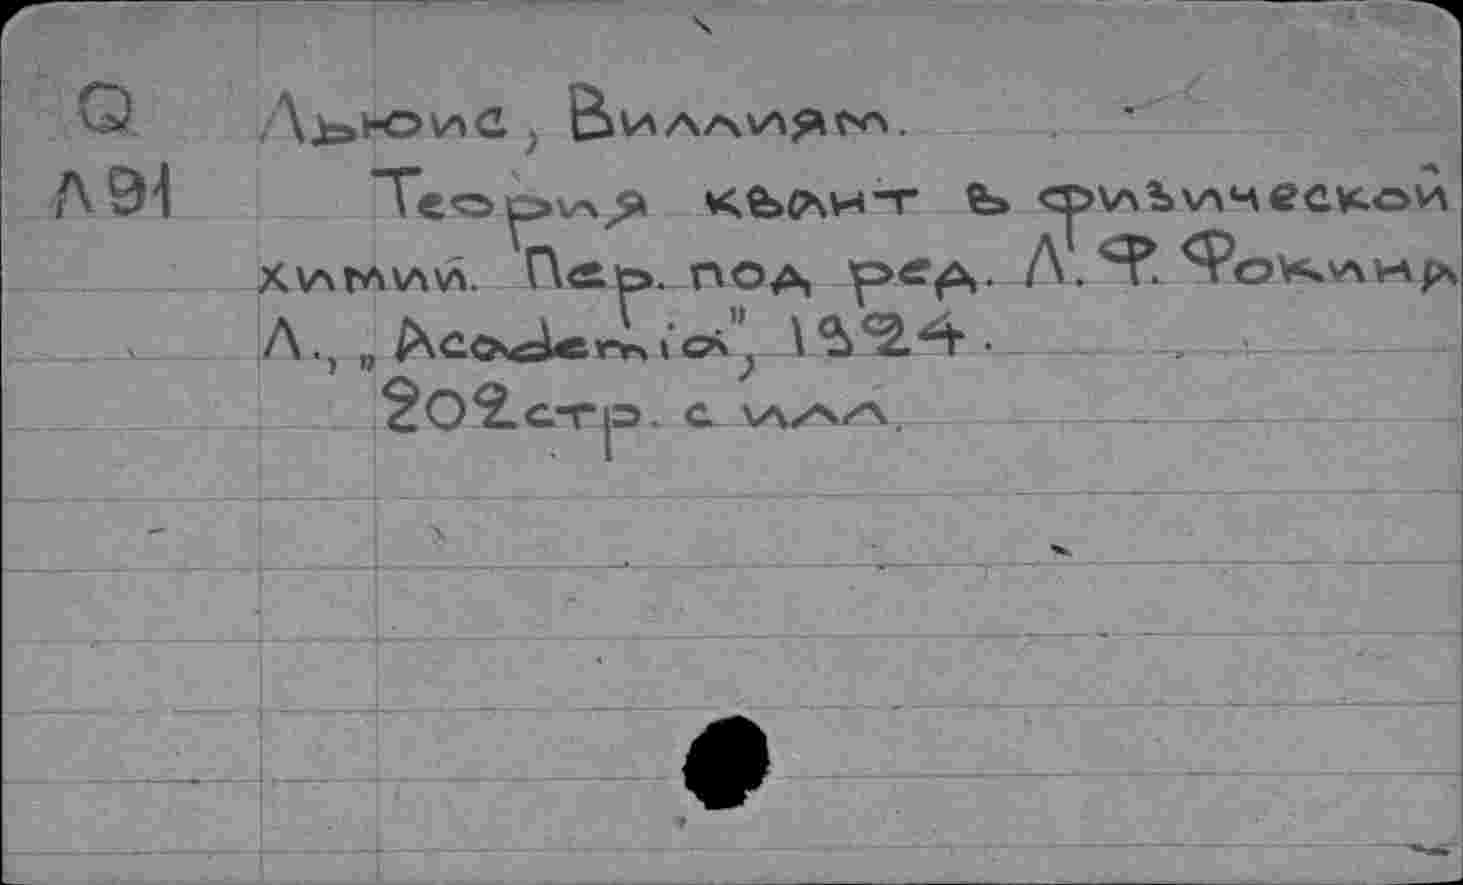 Q Льюис, Виллиям.
Л91 Теория квант в физической
химии. Пер. под ред. Л. Ф. Фокина
Л., „Academia", 1924.
202 стр. с илл.